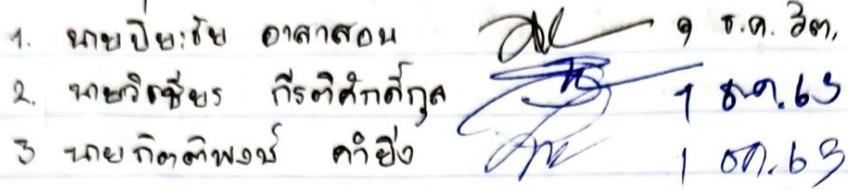 1. นายปิยะชัย อาสาสอน ๑ ธ.ค. ๖๓.
2. นายวิเชียร กีรติศักดิ์กุล 1 ธ.ค. 63
3 นายกิตติพงษ์ คำยิ่ง 1 ธค. 63